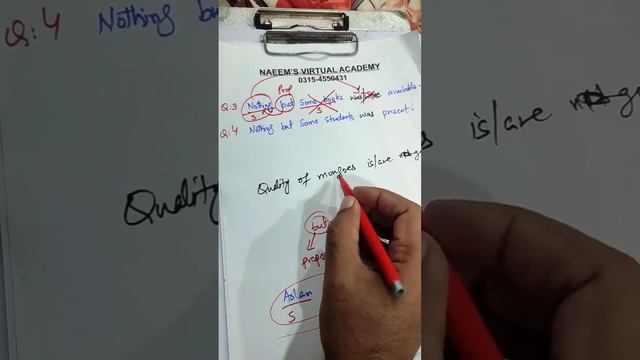 Q:4 Nothing bu
NAEEM'S VIRTUAL ACADEMY
0315-4550431
Prep
Q:3 Nothing but Some books was available.
S S
Q:4 Nothing but Some students was present.
is/are
Quality of mangoes is/are
Quality
but
prepo
Aslam
S